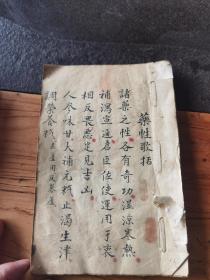 藥性歌括
諸藥之性各有奇功溫涼寒熱
補瀉宣通君臣佐使運用于衷
相反畏惡定見吉凶
人參味甘大補元氣止渴生津
調榮養衛